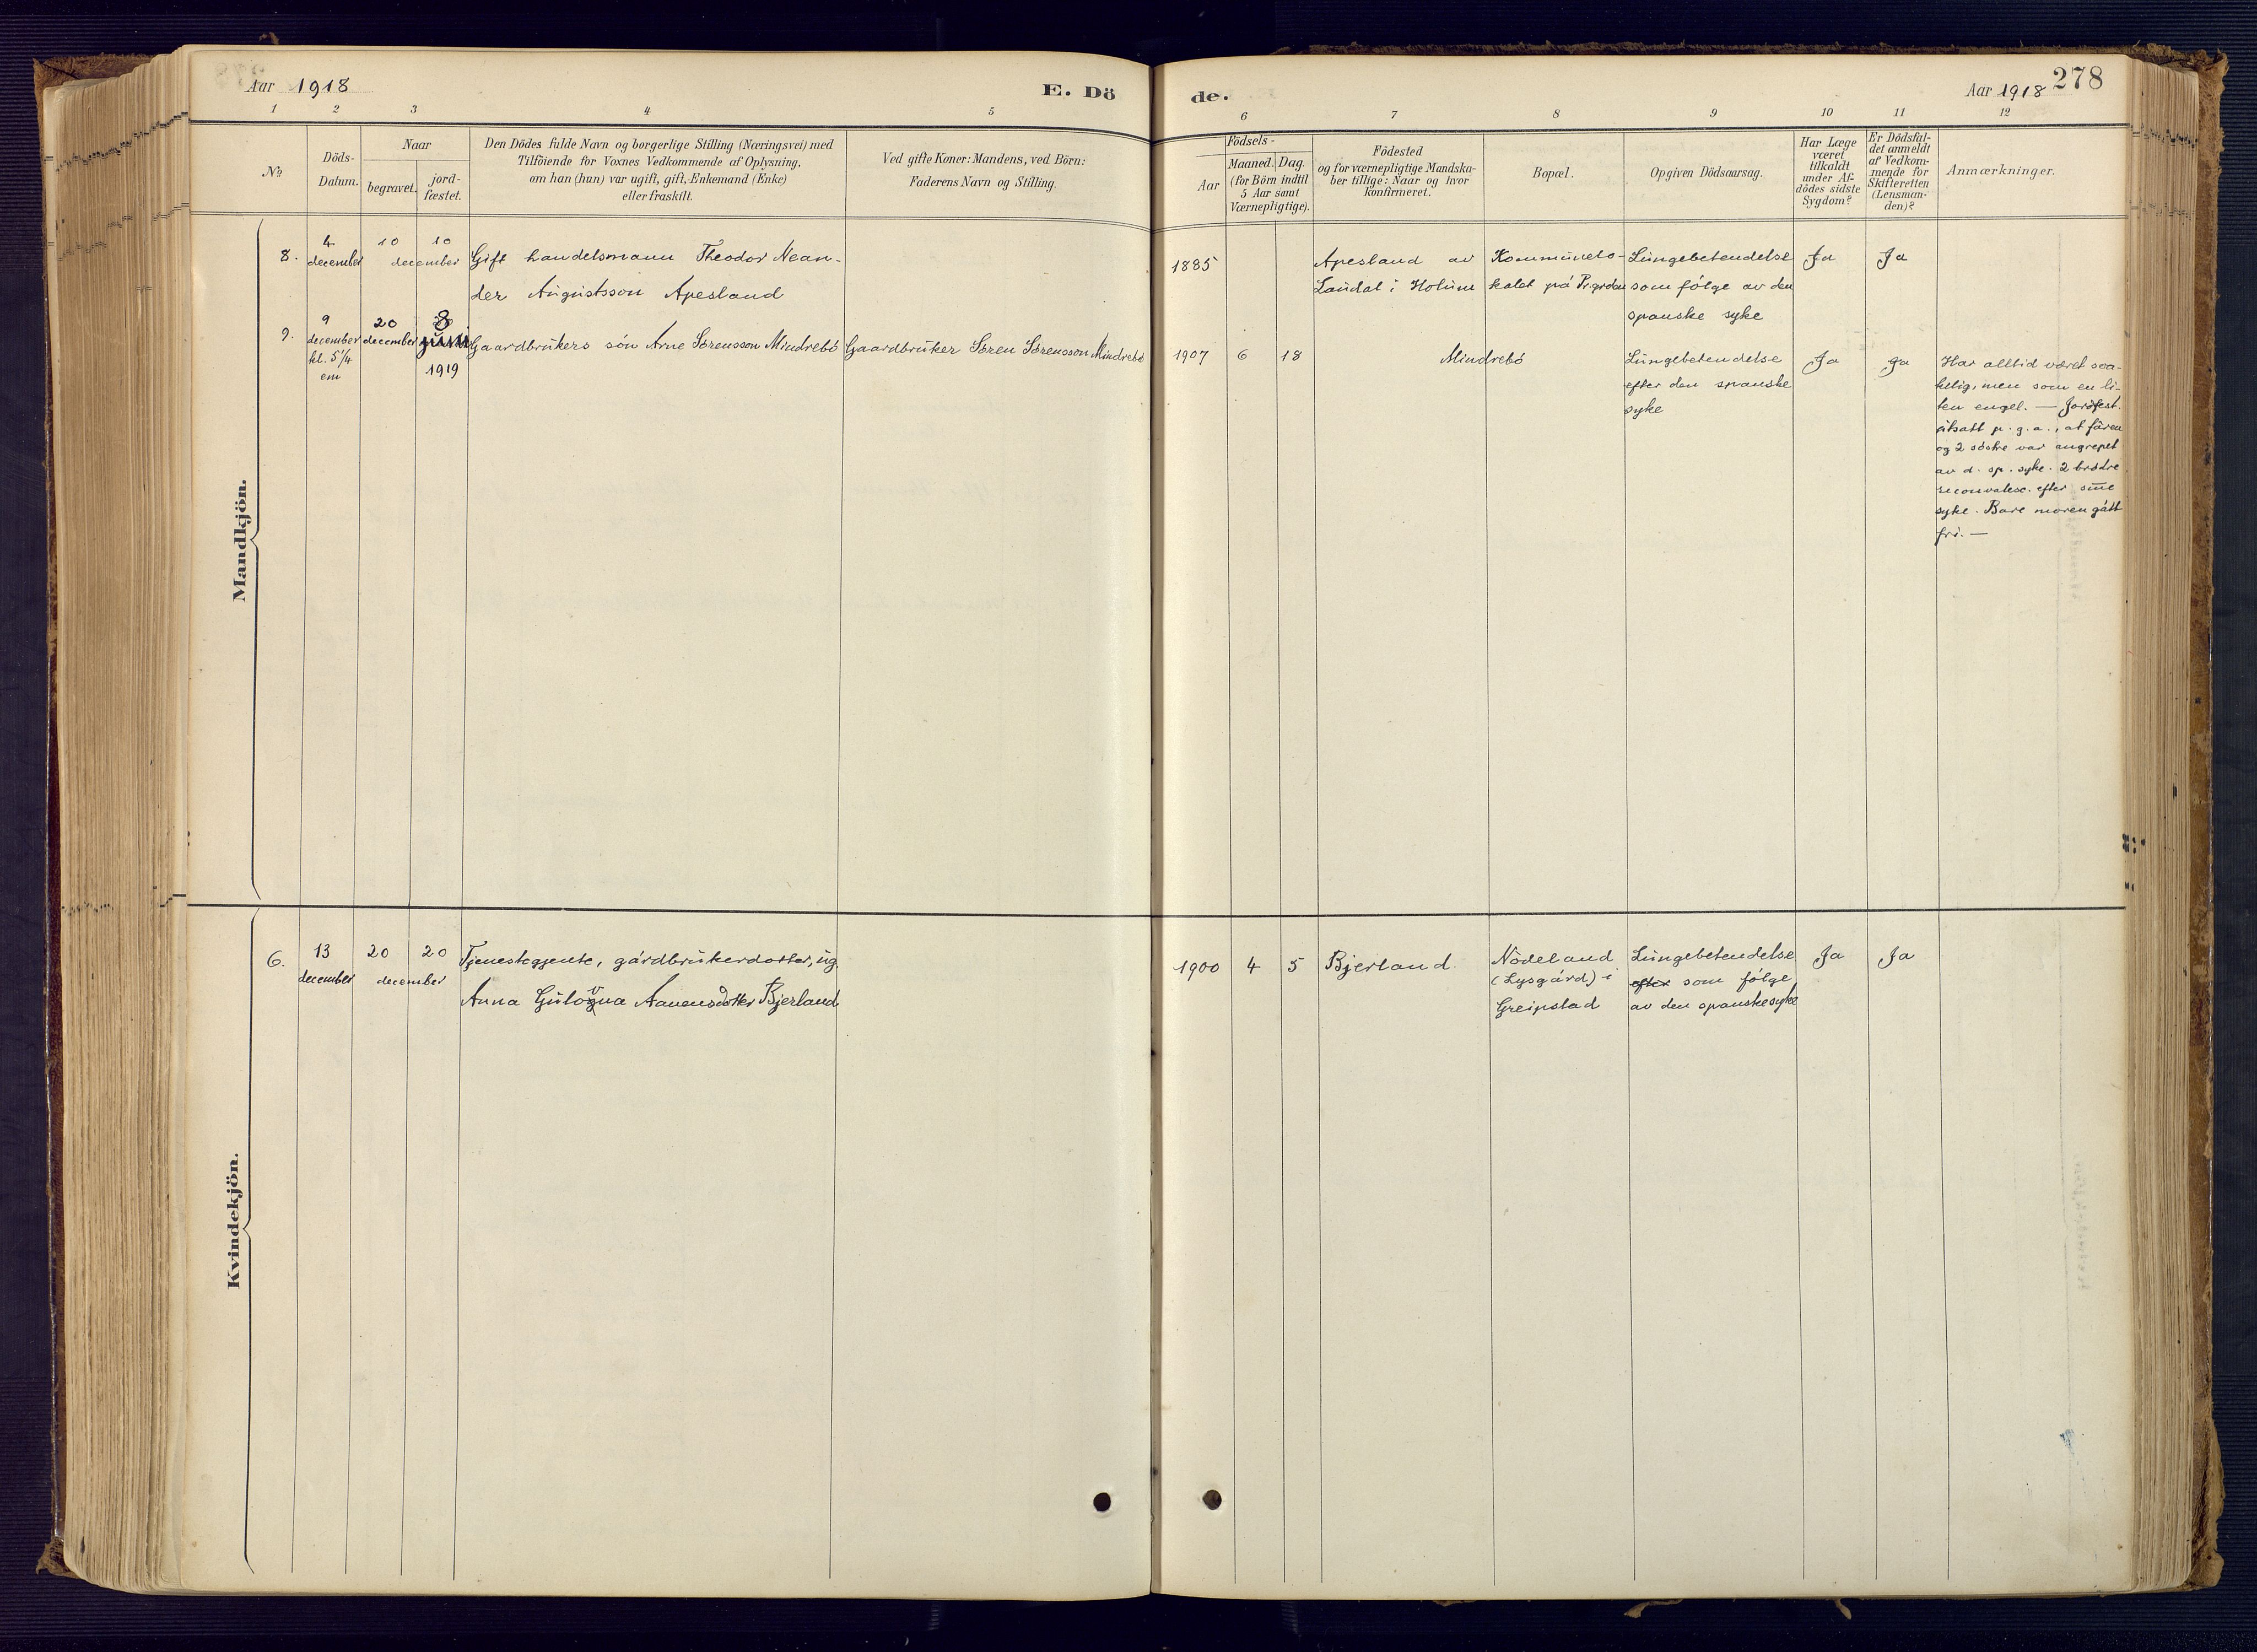 Aar 1918
E. Dö
de.
Aar 1918
278
1 2 3 4 5 6 7 8 9 10 11 12
№
Döds-
Datum.
Naar
begravet.
jord-
fæstet.
Den Dödes fulde Navn og borgerlige Stilling (Næringsvei) med
Tilföiende for Voxnes Vedkommende af Oplysning,
om han (hun) var ugift, gift, Enkemand (Enke)
eller fraskilt.
Ved gifte Koner: Mandens, ved Börn:
Faderens Navn og Stilling.
Födsels-
Aar
Maaned. Dag.
(for Börn indtil
5 Aar samt
Værnepligtige).
Födested
og for værnepligtige Mandska-
ber tillige: Naar og hvor
konfirmeret.
Bopæl.
Opgiven Dödsaarsag.
Har Læge
været
tilkaldt
under Af-
dödes sidste
Sygdom?
Er Dödsfal-
det anmeldt
af Vedkom-
mende for
Skifteretten
(Lensman-
den)?
Anmærkninger.
Mandkjön.
8.
4
december
10 10
december
Gift handelsmann Theodor Nean-
der Augustsson Apesland
1885
Apesland av
Laudal i Holum
Kommunelo-
kalet på
Lungebetendelse
som følge av den
spanske syke
Ja
Ja
9.
9
december
kl. 5 1/4
em
20
december
8
juni
1919
Gaardbrukers søn Arne Sørensson Mindrebø
Gaardbruker Søren Sørensson Mindrebø
1907 6 18
Mindrebø
Lungebetendelse
efter den spanske
syke
Ja
Ja
Har alltid været sva-
kelig, men som en li-
ten engel. — Jordfest.
utsatt p. g. a., at faren
og 2 søstre var angrepet
av d. sp. syke. 2 brødre
reconvalesc. efter sm̅e
syke. Bare moren gått
fri. —
Kvindekjön.
6.
13
december
20 20
december
Tjenestegjente, gårdbrukerdotter, ug.
Anna Gulovna Aanensdotter Bjerland
1900 4 5
Bjerland.
Nodeland
(Lysgård) i
Greipstad
Lungebetendelse
efter som følge
av den spanske syke
Ja
Ja